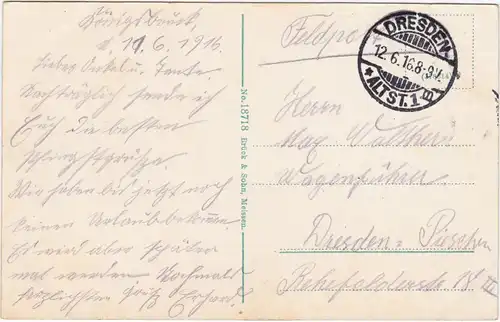 Königsbrück,
d. 11.6.1916
Lieber Onkel u. Tante.
Nachträglich sende ich
Euch die besten
Pfingstgrüße.
Wir haben bis jetzt noch
keinen Urlaub bekommen.
Es wird aber später
mal werden Nochmals
herzlichsten Gruß Erhard.
No. 18718 Brück & Sohn, Meissen.
Feldpo
DRESDEN-
12.6.16.8-9V.
*ALTST.1
Herrn
Max Walther
Wagenführer
Dresden-Pieschen
Rehefelderstr 18 III